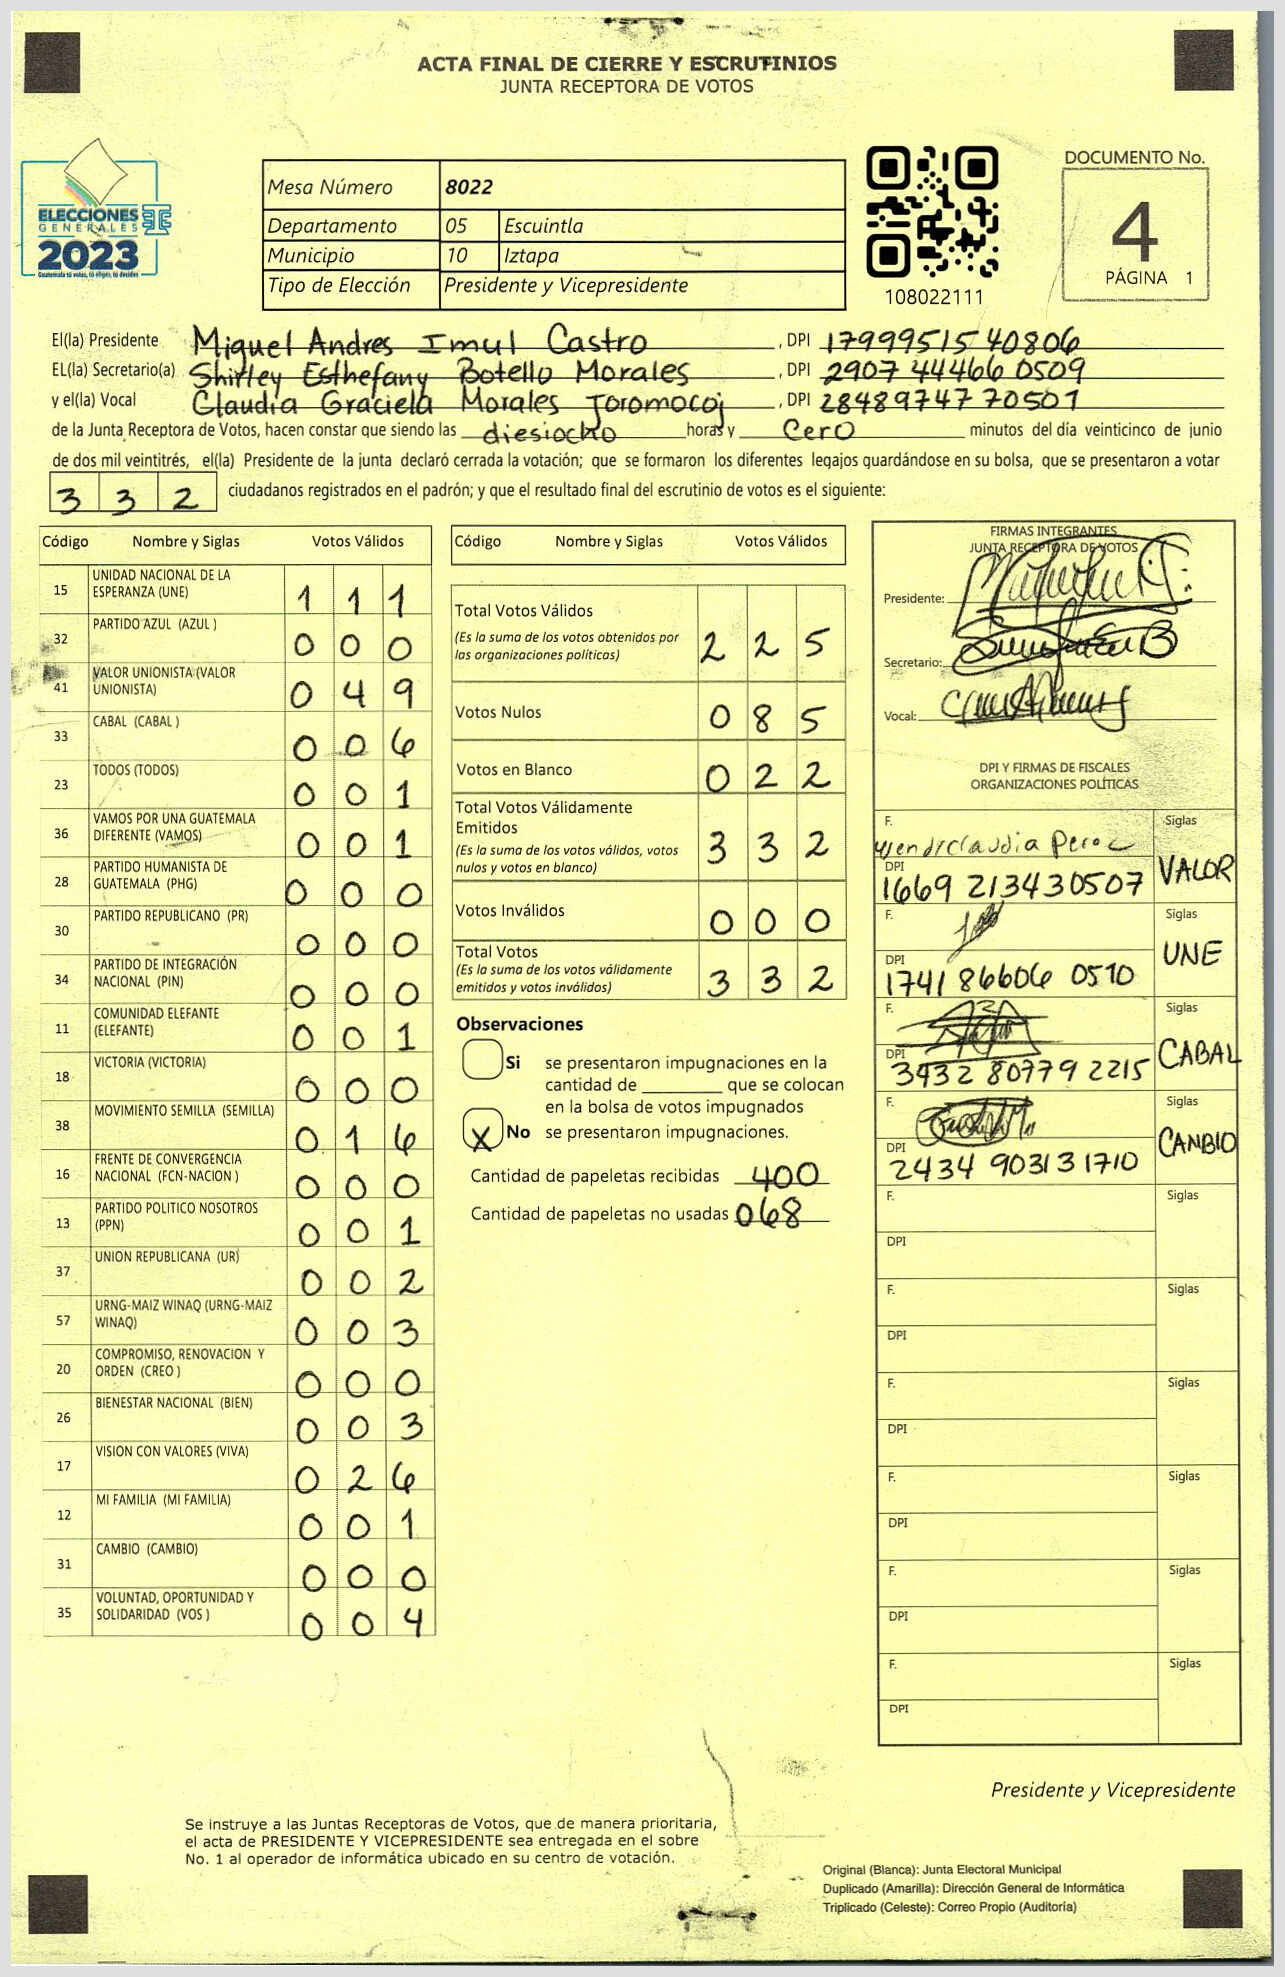 ACTA FINAL DE CIERRE Y ESCRUTINIOS
JUNTA RECEPTORA DE VOTOS
ELECCIONES
GENERALES
2023
Guatemala tú votas, tú eliges, tú decides
Mesa Número 8022
Departamento 05 Escuintla
Municipio 10 Iztapa
Tipo de Elección Presidente y Vicepresidente
108022111
DOCUMENTO No.
4
PÁGINA 1
El(la) Presidente Miguel Andres Imul Castro, DPI 1799951540806
EL(la) Secretario(a) Shirley Esthefany Botello Morales, DPI 2907 44466 0509
y el(la) Vocal Claudia Graciela Morales Joromocoj, DPI 2848974770501
de la Junta Receptora de Votos, hacen constar que siendo las diesiocho horas y Cero minutos del día veinticinco de junio
de dos mil veintitrés, el(la) Presidente de la junta declaró cerrada la votación; que se formaron los diferentes legajos guardándose en su bolsa, que se presentaron a votar
332 ciudadanos registrados en el padrón; y que el resultado final del escrutinio de votos es el siguiente:
Código Nombre y Siglas Votos Válidos
15 UNIDAD NACIONAL DE LA ESPERANZA (UNE) 111
32 PARTIDO AZUL (AZUL ) 000
41 VALOR UNIONISTA (VALOR UNIONISTA) 049
33 CABAL (CABAL ) 006
23 TODOS (TODOS) 001
36 VAMOS POR UNA GUATEMALA DIFERENTE (VAMOS) 001
28 PARTIDO HUMANISTA DE GUATEMALA (PHG) 000
30 PARTIDO REPUBLICANO (PR) 000
34 PARTIDO DE INTEGRACIÓN NACIONAL (PIN) 000
11 COMUNIDAD ELEFANTE (ELEFANTE) 001
18 VICTORIA (VICTORIA) 000
38 MOVIMIENTO SEMILLA (SEMILLA) 016
16 FRENTE DE CONVERGENCIA NACIONAL (FCN-NACION ) 000
13 PARTIDO POLITICO NOSOTROS (PPN) 001
37 UNION REPUBLICANA (UR) 002
57 URNG-MAIZ WINAQ (URNG-MAIZ WINAQ) 003
20 COMPROMISO, RENOVACION Y ORDEN (CREO ) 000
26 BIENESTAR NACIONAL (BIEN) 003
17 VISION CON VALORES (VIVA) 026
12 MI FAMILIA (MI FAMILIA) 001
31 CAMBIO (CAMBIO) 000
35 VOLUNTAD, OPORTUNIDAD Y SOLIDARIDAD (VOS ) 004
Código Nombre y Siglas Votos Válidos
Total Votos Válidos 225
(Es la suma de los votos obtenidos por
las organizaciones políticas)
Votos Nulos 085
Votos en Blanco 022
Total Votos Válidamente
Emitidos 332
(Es la suma de los votos válidos, votos
nulos y votos en blanco)
Votos Inválidos 000
Total Votos 332
(Es la suma de los votos válidamente
emitidos y votos inválidos)
Observaciones
Si se presentaron impugnaciones en la
cantidad de ________ que se colocan
en la bolsa de votos impugnados
X No se presentaron impugnaciones.
Cantidad de papeletas recibidas 400
Cantidad de papeletas no usadas 068
FIRMAS INTEGRANTES
JUNTA RECEPTORA DE VOTOS
Presidente:
Secretario:
Vocal:
DPI Y FIRMAS DE FISCALES
ORGANIZACIONES POLÍTICAS
F. Siglas
Claudia Perez
DPI
1669 213430507 VALOR
F. Siglas
DPI UNE
1741 86606 0510
F. Siglas
DPI CABAL
3432 80779 2215
F. Siglas
DPI CANBIO
2434 90313 1710
F. Siglas
DPI
F. Siglas
DPI
F. Siglas
DPI
F. Siglas
DPI
F. Siglas
DPI
F. Siglas
DPI
Presidente y Vicepresidente
Se instruye a las Juntas Receptoras de Votos, que de manera prioritaria,
el acta de PRESIDENTE Y VICEPRESIDENTE sea entregada en el sobre
No. 1 al operador de informática ubicado en su centro de votación.
Original (Blanca): Junta Electoral Municipal
Duplicado (Amarilla): Dirección General de Informática
Triplicado (Celeste): Correo Propio (Auditoría)